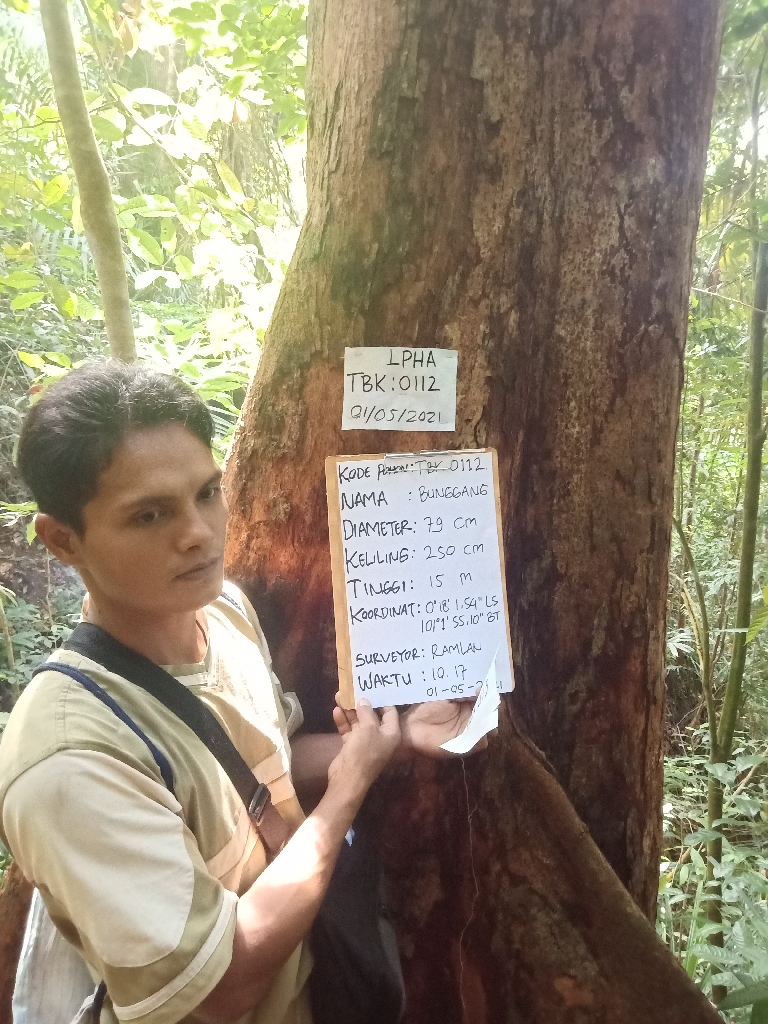 LPHA
TBK:0112
01/05/2021
KODE : TBK 0112
NAMA : BUNGGANG
DIAMETER: 79 CM
KELILING: 250 CM
TINGGI: 15 M
KOORDINAT: 0°18' 1,54" LS
101°1' 55,10" BT
SURVEYOR: RAMLAN
WAKTU : 10.17
01-05-